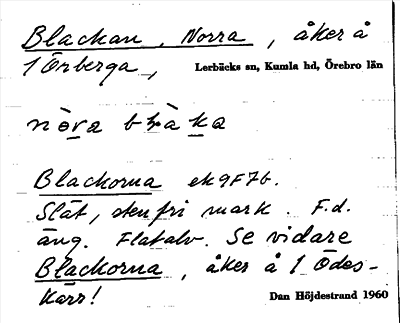 Blackan, Norra, åker å
1 Örberga, Lerbäcks sn, Kumla hd, Örebro län
nò̱ra bḷàka
Blackorna ek 9F7b.
Slät, stenfri mark. F.d.
äng. Flatalv. Se vidare
Blackorna, åker å 1 Ödes-
kärr!
Dan Höjdestrand 1960